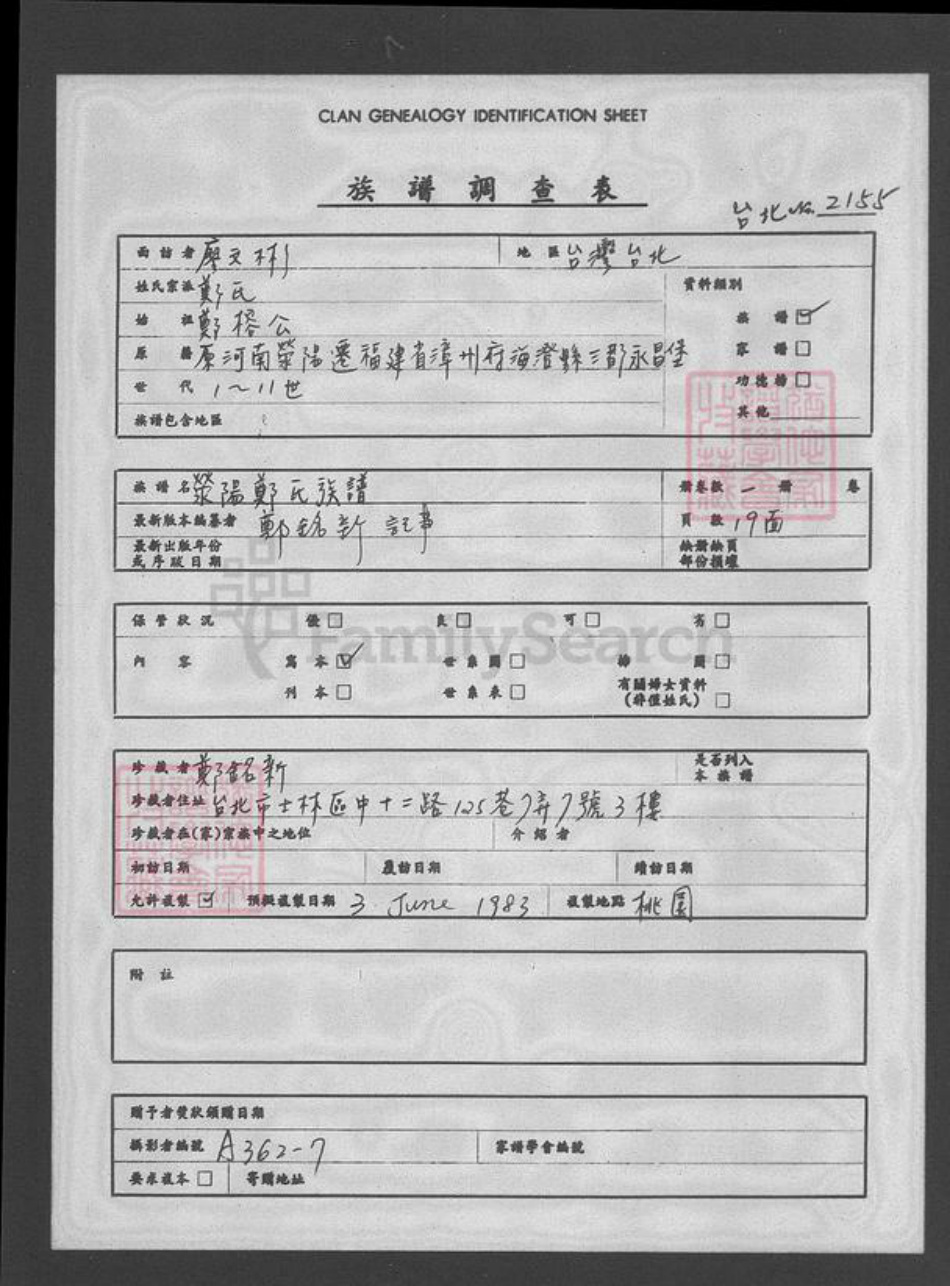 CLAN GENEALOGY IDENTIFICATION SHEET
族譜調查表
台北 No. 2155
面訪者 廖文彬 地區 台灣台北
姓氏宗派 鄭氏 資料類別
始祖 鄭榕公 族譜 ☑
原籍 原河南滎陽遷福建省漳州府海澄縣三都永昌堡 家譜 □
世代 1～11世 功德榜 □
族譜包含地區 其他
族譜名 滎陽鄭氏族譜 冊卷數 一 冊 卷
最新版本編纂者 鄭銘新 記事 頁數 19面
最新出版年份 缺冊缺頁
或序跋日期 部份損壞
保管狀況 優 □ 良 □ 可 □ 劣 □
內容 寫本 ☑ 世系圖 □ 掃圖 □
刊本 □ 世系表 □ 有關婦女資料
(非僅姓氏) □
FamilySearch
珍藏者 鄭銘新 是否列入
本族譜
珍藏者住址 台北市士林區中十二路125巷7弄7號3樓
珍藏者在(家)宗族中之地位 介紹者
初訪日期 覆訪日期 續訪日期
允許複製 ☑ 預擬複製日期 3 June 1983 複製地點 桃園
附註
贈予者獎狀頒贈日期
攝影者編號 A362-7 家譜學會編號
要求複本 □ 寄贈地址